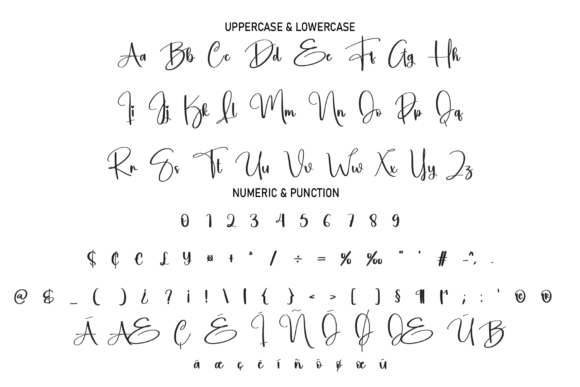 UPPERCASE & LOWERCASE
Aa Bb Cc Dd Ee Ff Gg Hh
Ii Jj Kk Ll Mm Nn Oo Pp Qq
Rr Ss Tt Uu Vv Ww Xx Yy Zz
NUMERIC & PUNCTION
0 1 2 3 4 5 6 7 8 9
$ ¢ € £ ¥ ¤ + * / ÷ = % ‰ " ' # -^, .
@ & _ ( ) ¿ ? ¡ ! \ | { } < > [ ] § ¶ ; : ' © ®
Ã Æ Ç É Î Ñ Ó Ø Œ Ú ß
ä æ ç è í ñ ô ø œ ú